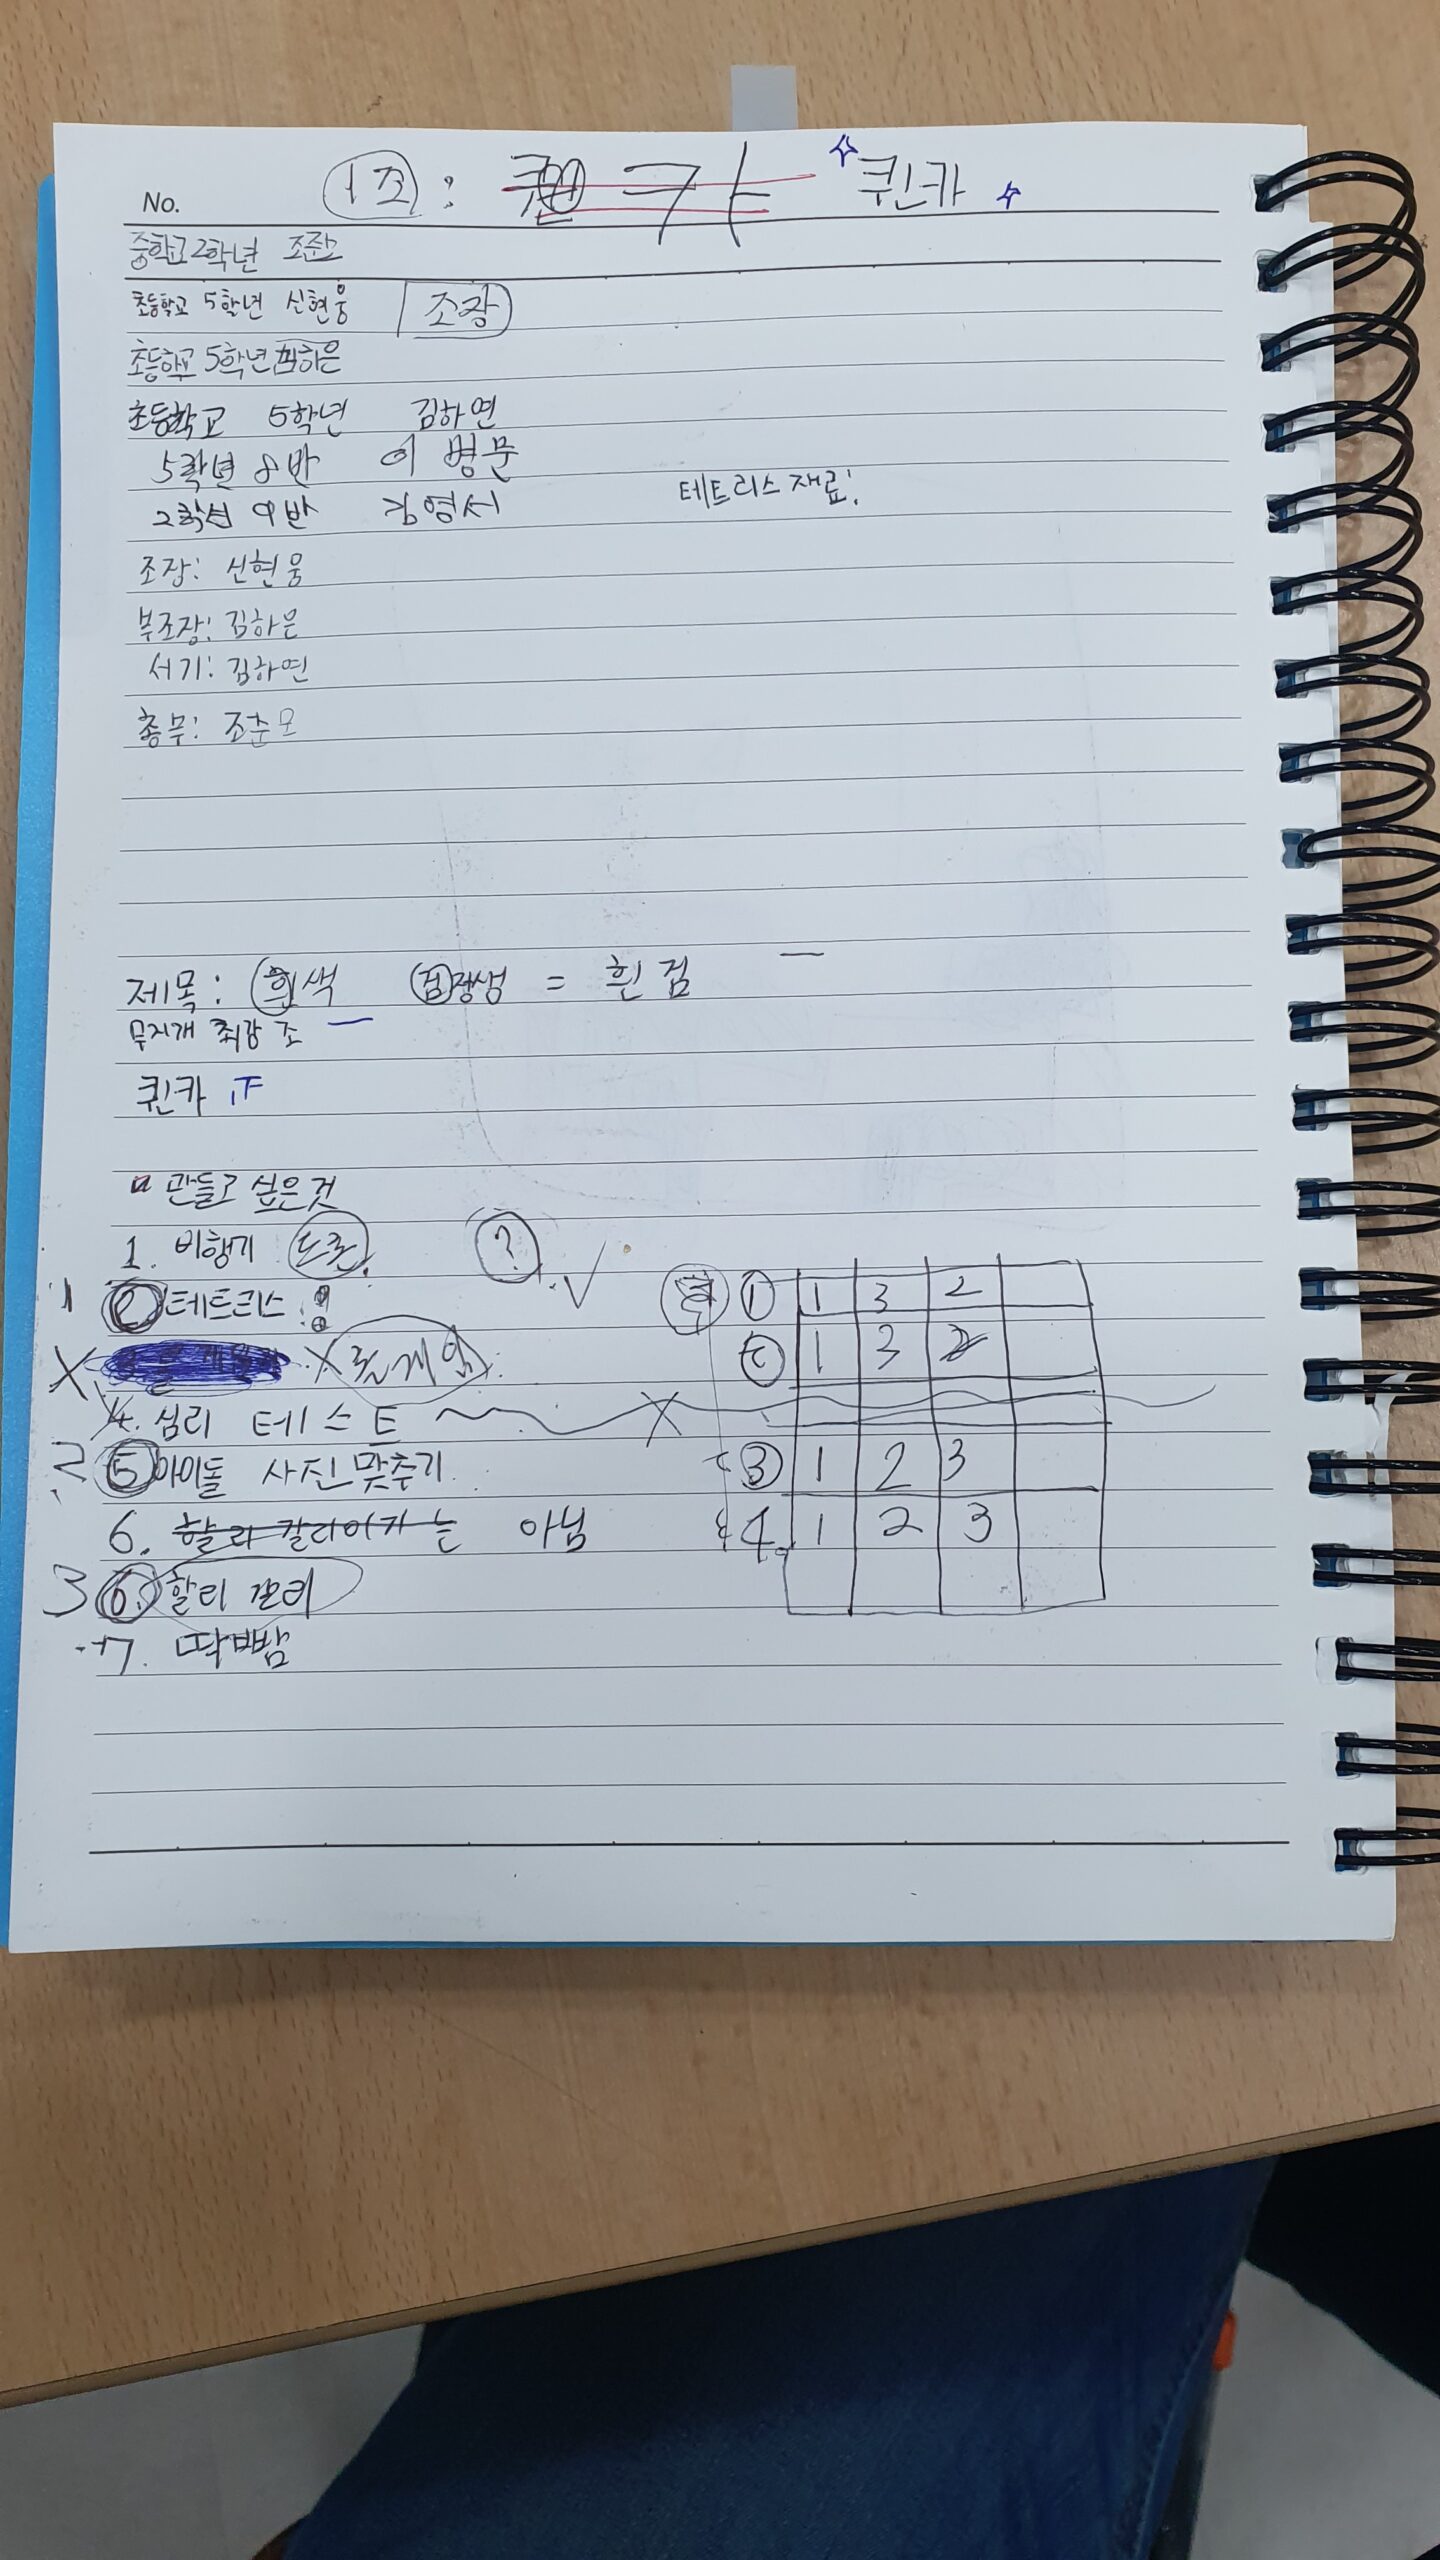 No. 1조 : 퀸카
중학교 2학년 조준모
초등학교 5학년 신현웅 조장
초등학교 5학년 김하은
초등학교 5학년 김하연
5학년 8반 이병문
2학년 9반 김영서
테트리스 재료:
조장: 신현웅
부조장: 김하은
서기: 김하연
총무: 조준모
제목: 흰색 검장생 = 흰검 一
무지개 최강 조 一
퀸카 正
만들고 싶은것
1. 비행기 ?
1 2 테트리스
X X 게임
4. 심리 테스트 X
2 5 아이돌 사진맞추기
6. 아님
3 6. 할리 갈리
7. 딱빰
1 1 3 2
2 1 3 2
3 1 2 3
4. 1 2 3